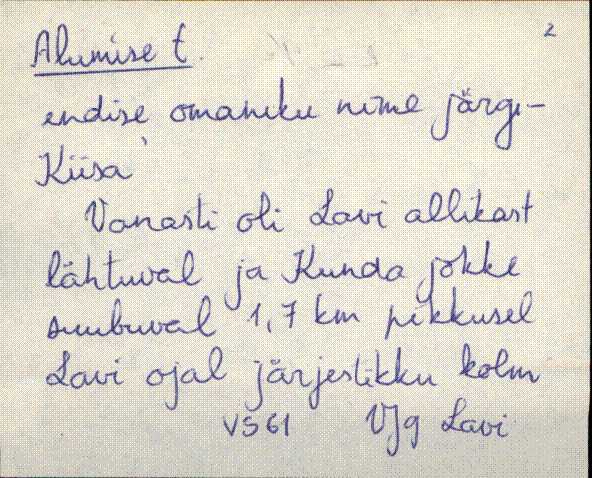 2
Alumise t.
endise omaniku nime järgi-
Kiisa
Vanasti oli Lavi allikast
lähtuval ja Kunda jõkke
suubuval 1,7 km pikkusel
Lavi ojal järjestikku kolm
VS61 VJg Lavi